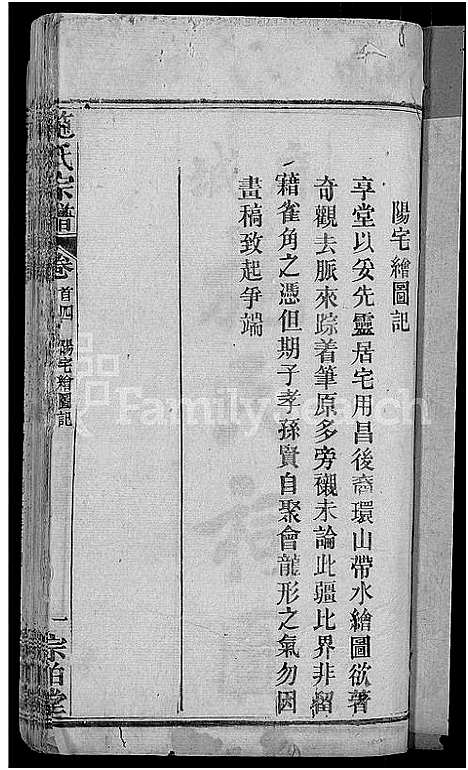 陽宅繪圖記
享堂以妥先靈居宅用昌後裔環山帶水繪圖欲著
奇觀去脈來踪着筆原多旁襯未論此疆比界非留
藉雀角之憑但期子孝孫賢自聚會龍形之氣勿因
畫稿致起爭端
氏宗譜
卷首四
陽宅繪圖記
一
宗伯堂